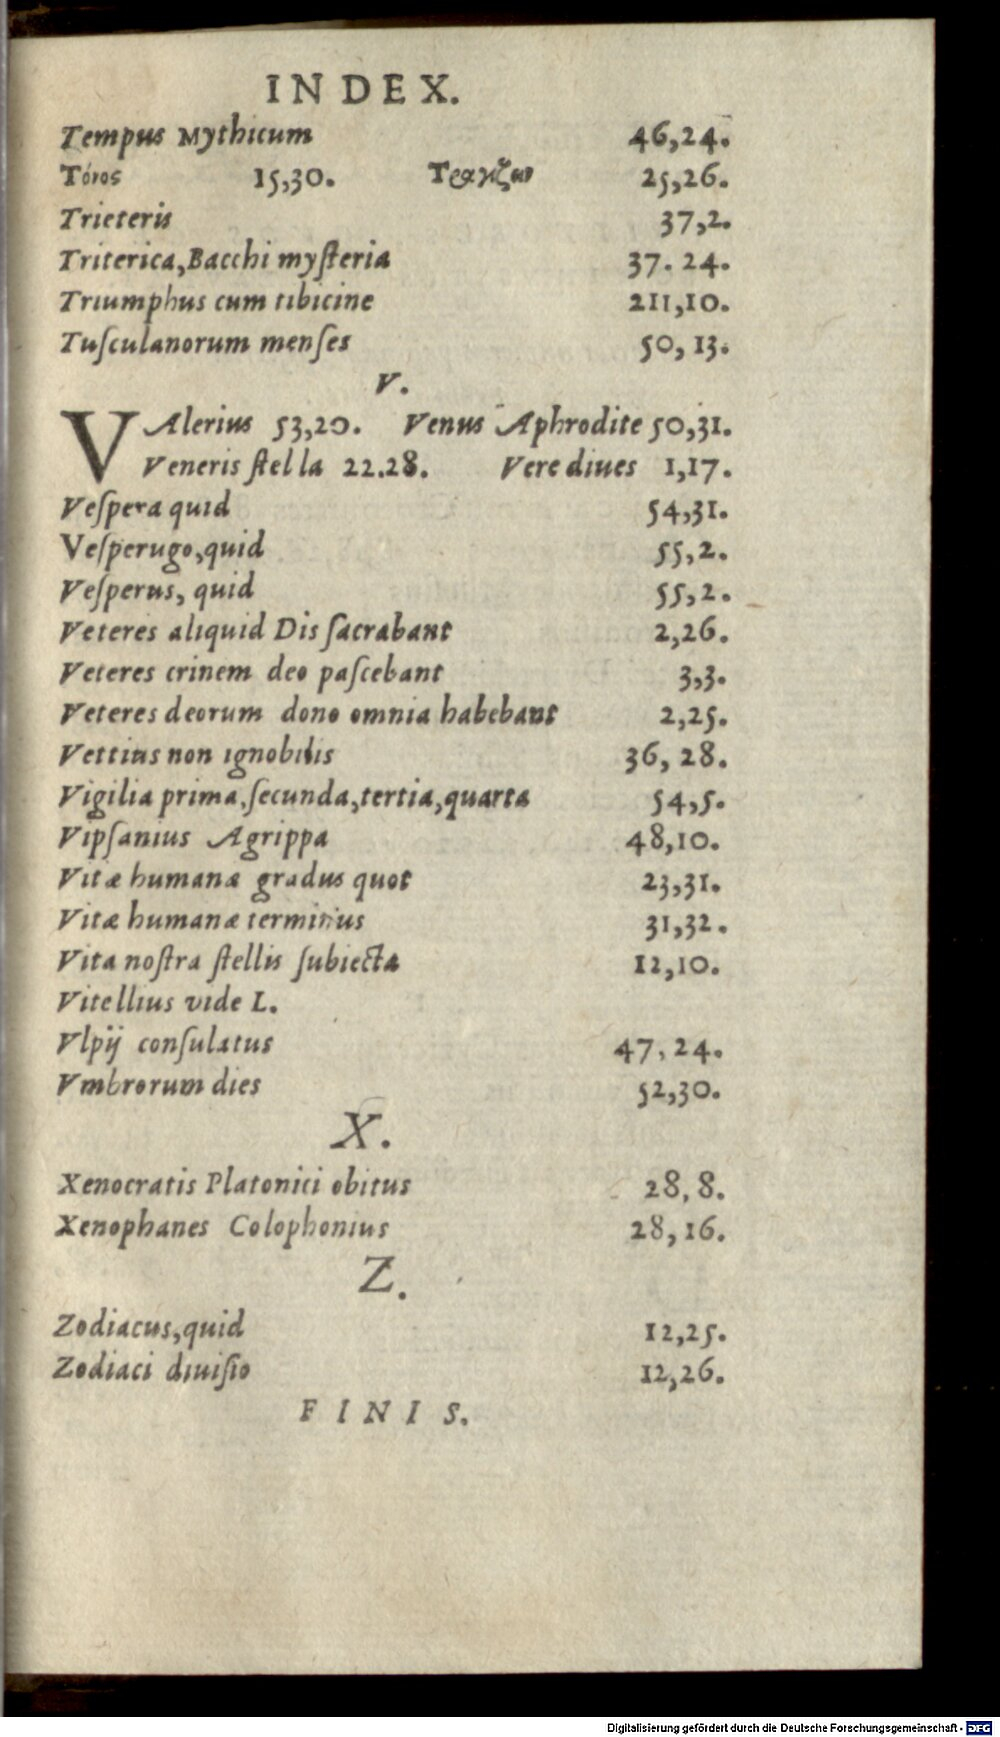 INDEX.
Tempus Mythicum 46,24.
Τόνος 15,30. Τραγίζειν 25,26.
Trieteris 37,2.
Triterica,Bacchi myſteria 37. 24.
Triumphus cum tibicine 211,10.
Tuſculanorum menſes 50, 13.
V.
VAlerius 53,20. Venus Aphrodite 50,31.
Veneris ſtella 22.28. Vere diues 1,17.
Veſpera quid 54,31.
Veſperugo,quid 55,2.
Veſperus, quid 55,2.
Veteres aliquid Dis ſacrabant 2,26.
Veteres crinem deo paſcebant 3,3.
Veteres deorum dono omnia habebant 2,25.
Vettius non ignobilis 36, 28.
Vigilia prima,ſecunda,tertia,quarta 54,5.
Vipſanius Agrippa 48,10.
Vitæ humanæ gradus quot 23,31.
Vitæ humanæ terminus 31,32.
Vita noſtra ſtellis ſubiecta 12,10.
Vitellius vide L.
Vlpij conſulatus 47, 24.
Vmbrorum dies 52,30.
X.
Xenocratis Platonici obitus 28, 8.
Xenophanes Colophonius 28, 16.
Z.
Zodiacus,quid 12,25.
Zodiaci diuiſio 12,26.
FINIS.
Digitalisierung gefördert durch die Deutsche Forschungsgemeinschaft - DFG